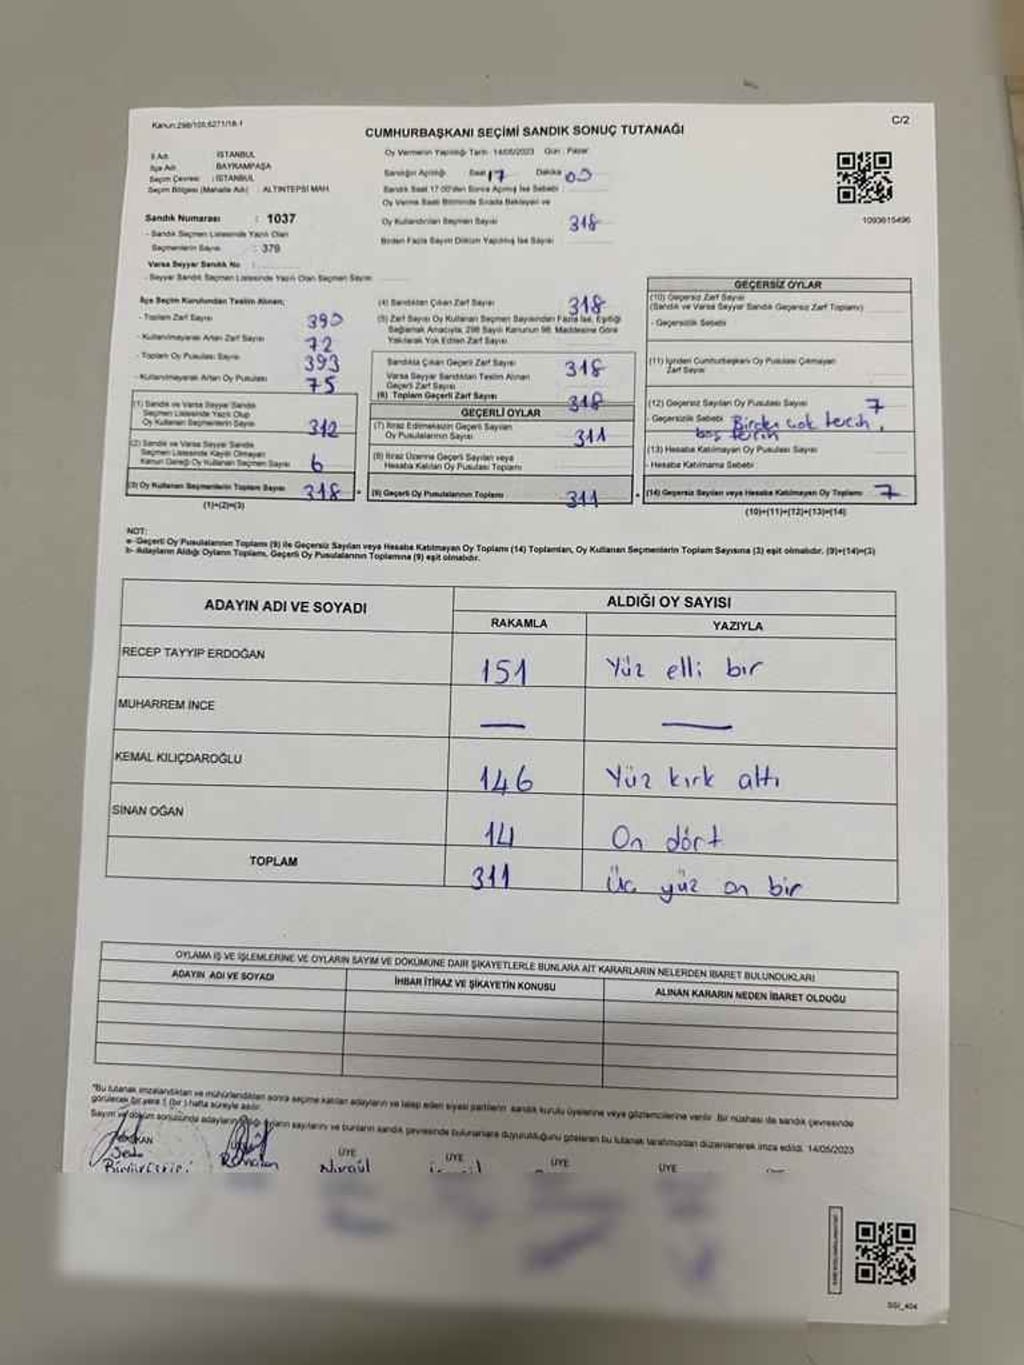 Kanun:298/105;6271/18-1
C/2
CUMHURBAŞKANI SEÇİMİ SANDIK SONUÇ TUTANAĞI
İl Adı : İSTANBUL
İlçe Adı : BAYRAMPAŞA
Seçim Çevresi : İSTANBUL
Seçim Bölgesi (Mahalle Adı) : ALTINTEPSİ MAH.
Sandık Numarası : 1037
- Sandık Seçmen Listesinde Yazılı Olan
Seçmenlerin Sayısı : 379
Varsa Seyyar Sandık No :
- Seyyar Sandık Seçmen Listesinde Yazılı Olan Seçmen Sayısı
Oy Vermenin Yapıldığı Tarih: 14/05/2023 Gün : Pazar
Sandığın Açıldığı Saat 17 Dakika 05
Sandık Saat 17:00'den Sonra Açılmış İse Sebebi :
Oy Verme Saati Bitiminde Sırada Bekleyen ve
Oy Kullandırılan Seçmen Sayısı 318
Birden Fazla Sayım Döküm Yapılmış İse Sayısı
1093615496
İlçe Seçim Kurulundan Teslim Alınan;
- Toplam Zarf Sayısı 390
- Kullanılmayarak Artan Zarf Sayısı 72
- Toplam Oy Pusulası Sayısı 393
- Kullanılmayarak Artan Oy Pusulası 75
(1) Sandık ve Varsa Seyyar Sandık
Seçmen Listesinde Yazılı Olup
Oy Kullanan Seçmenlerin Sayısı 312
(2) Sandık ve Varsa Seyyar Sandık
Seçmen Listesinde Kayıtlı Olmayan
Kanun Gereği Oy Kullanan Seçmen Sayısı 6
(3) Oy Kullanan Seçmenlerin Toplam Sayısı 318
(1)+(2)=(3)
(4) Sandıktan Çıkan Zarf Sayısı 318
(5) Zarf Sayısı Oy Kullanan Seçmen Sayısından Fazla İse, Eşitliği
Sağlamak Amacıyla, 298 Sayılı Kanunun 98. Maddesine Göre
Yakılarak Yok Edilen Zarf Sayısı
Sandıkta Çıkan Geçerli Zarf Sayısı 318
Varsa Seyyar Sandıktan Teslim Alınan
Geçerli Zarf Sayısı
(6) Toplam Geçerli Zarf Sayısı 318
GEÇERLİ OYLAR
(7) İtiraz Edilmeksizin Geçerli Sayılan
Oy Pusulalarının Sayısı 311
(8) İtiraz Üzerine Geçerli Sayılan veya
Hesaba Katılan Oy Pusulası Toplamı
(9) Geçerli Oy Pusulalarının Toplamı 311
GEÇERSİZ OYLAR
(10) Geçersiz Zarf Sayısı
(Sandık ve Varsa Seyyar Sandık Geçersiz Zarf Toplamı)
- Geçersizlik Sebebi
(11) İçinden Cumhurbaşkanı Oy Pusulası Çıkmayan
Zarf Sayısı
(12) Geçersiz Sayılan Oy Pusulası Sayısı 7
- Geçersizlik Sebebi Birden çok tercih,
boş tercih
(13) Hesaba Katılmayan Oy Pusulası Sayısı
- Hesaba Katılmama Sebebi
(14) Geçersiz Sayılan veya Hesaba Katılmayan Oy Toplamı 7
(10)+(11)+(12)+(13)=(14)
NOT:
a- Geçerli Oy Pusulalarının Toplamı (9) ile Geçersiz Sayılan veya Hesaba Katılmayan Oy Toplamı (14) Toplamları, Oy Kullanan Seçmenlerin Toplam Sayısına (3) eşit olmalıdır. (9)+(14)=(3)
b- Adayların Aldığı Oyların Toplamı, Geçerli Oy Pusulalarının Toplamına (9) eşit olmalıdır.
ADAYIN ADI VE SOYADI ALDIĞI OY SAYISI
RAKAMLA YAZIYLA
RECEP TAYYİP ERDOĞAN 151 Yüz elli bir
MUHARREM İNCE — —
KEMAL KILIÇDAROĞLU 146 Yüz kırk altı
SİNAN OĞAN 14 On dört
TOPLAM 311 Üç yüz on bir
OYLAMA İŞ VE İŞLEMLERİNE VE OYLARIN SAYIM VE DÖKÜMÜNE DAİR ŞİKAYETLERLE BUNLARA AİT KARARLARIN NELERDEN İBARET BULUNDUKLARI
ADAYIN ADI VE SOYADI İHBAR İTİRAZ VE ŞİKAYETİN KONUSU ALINAN KARARIN NEDEN İBARET OLDUĞU
*Bu tutanak imzalandıktan ve mühürlendikten sonra seçime katılan adayların ve talep eden siyasi partilerin sandık kurulu üyelerine veya gözlemcilerine verilir. Bir nüshası da sandık çevresinde
görülecek bir yere 1 (bir) hafta süreyle asılır.
Sayım ve döküm sonucunda adayların aldığı oyların sayılarını ve bunların sandık çevresinde bulunanlara duyurulduğunu gösteren bu tutanak tarafımızdan düzenlenerek imza edildi. 14/05/2023
BAŞKAN ÜYE ÜYE ÜYE ÜYE
Ramazan
SGİ_404